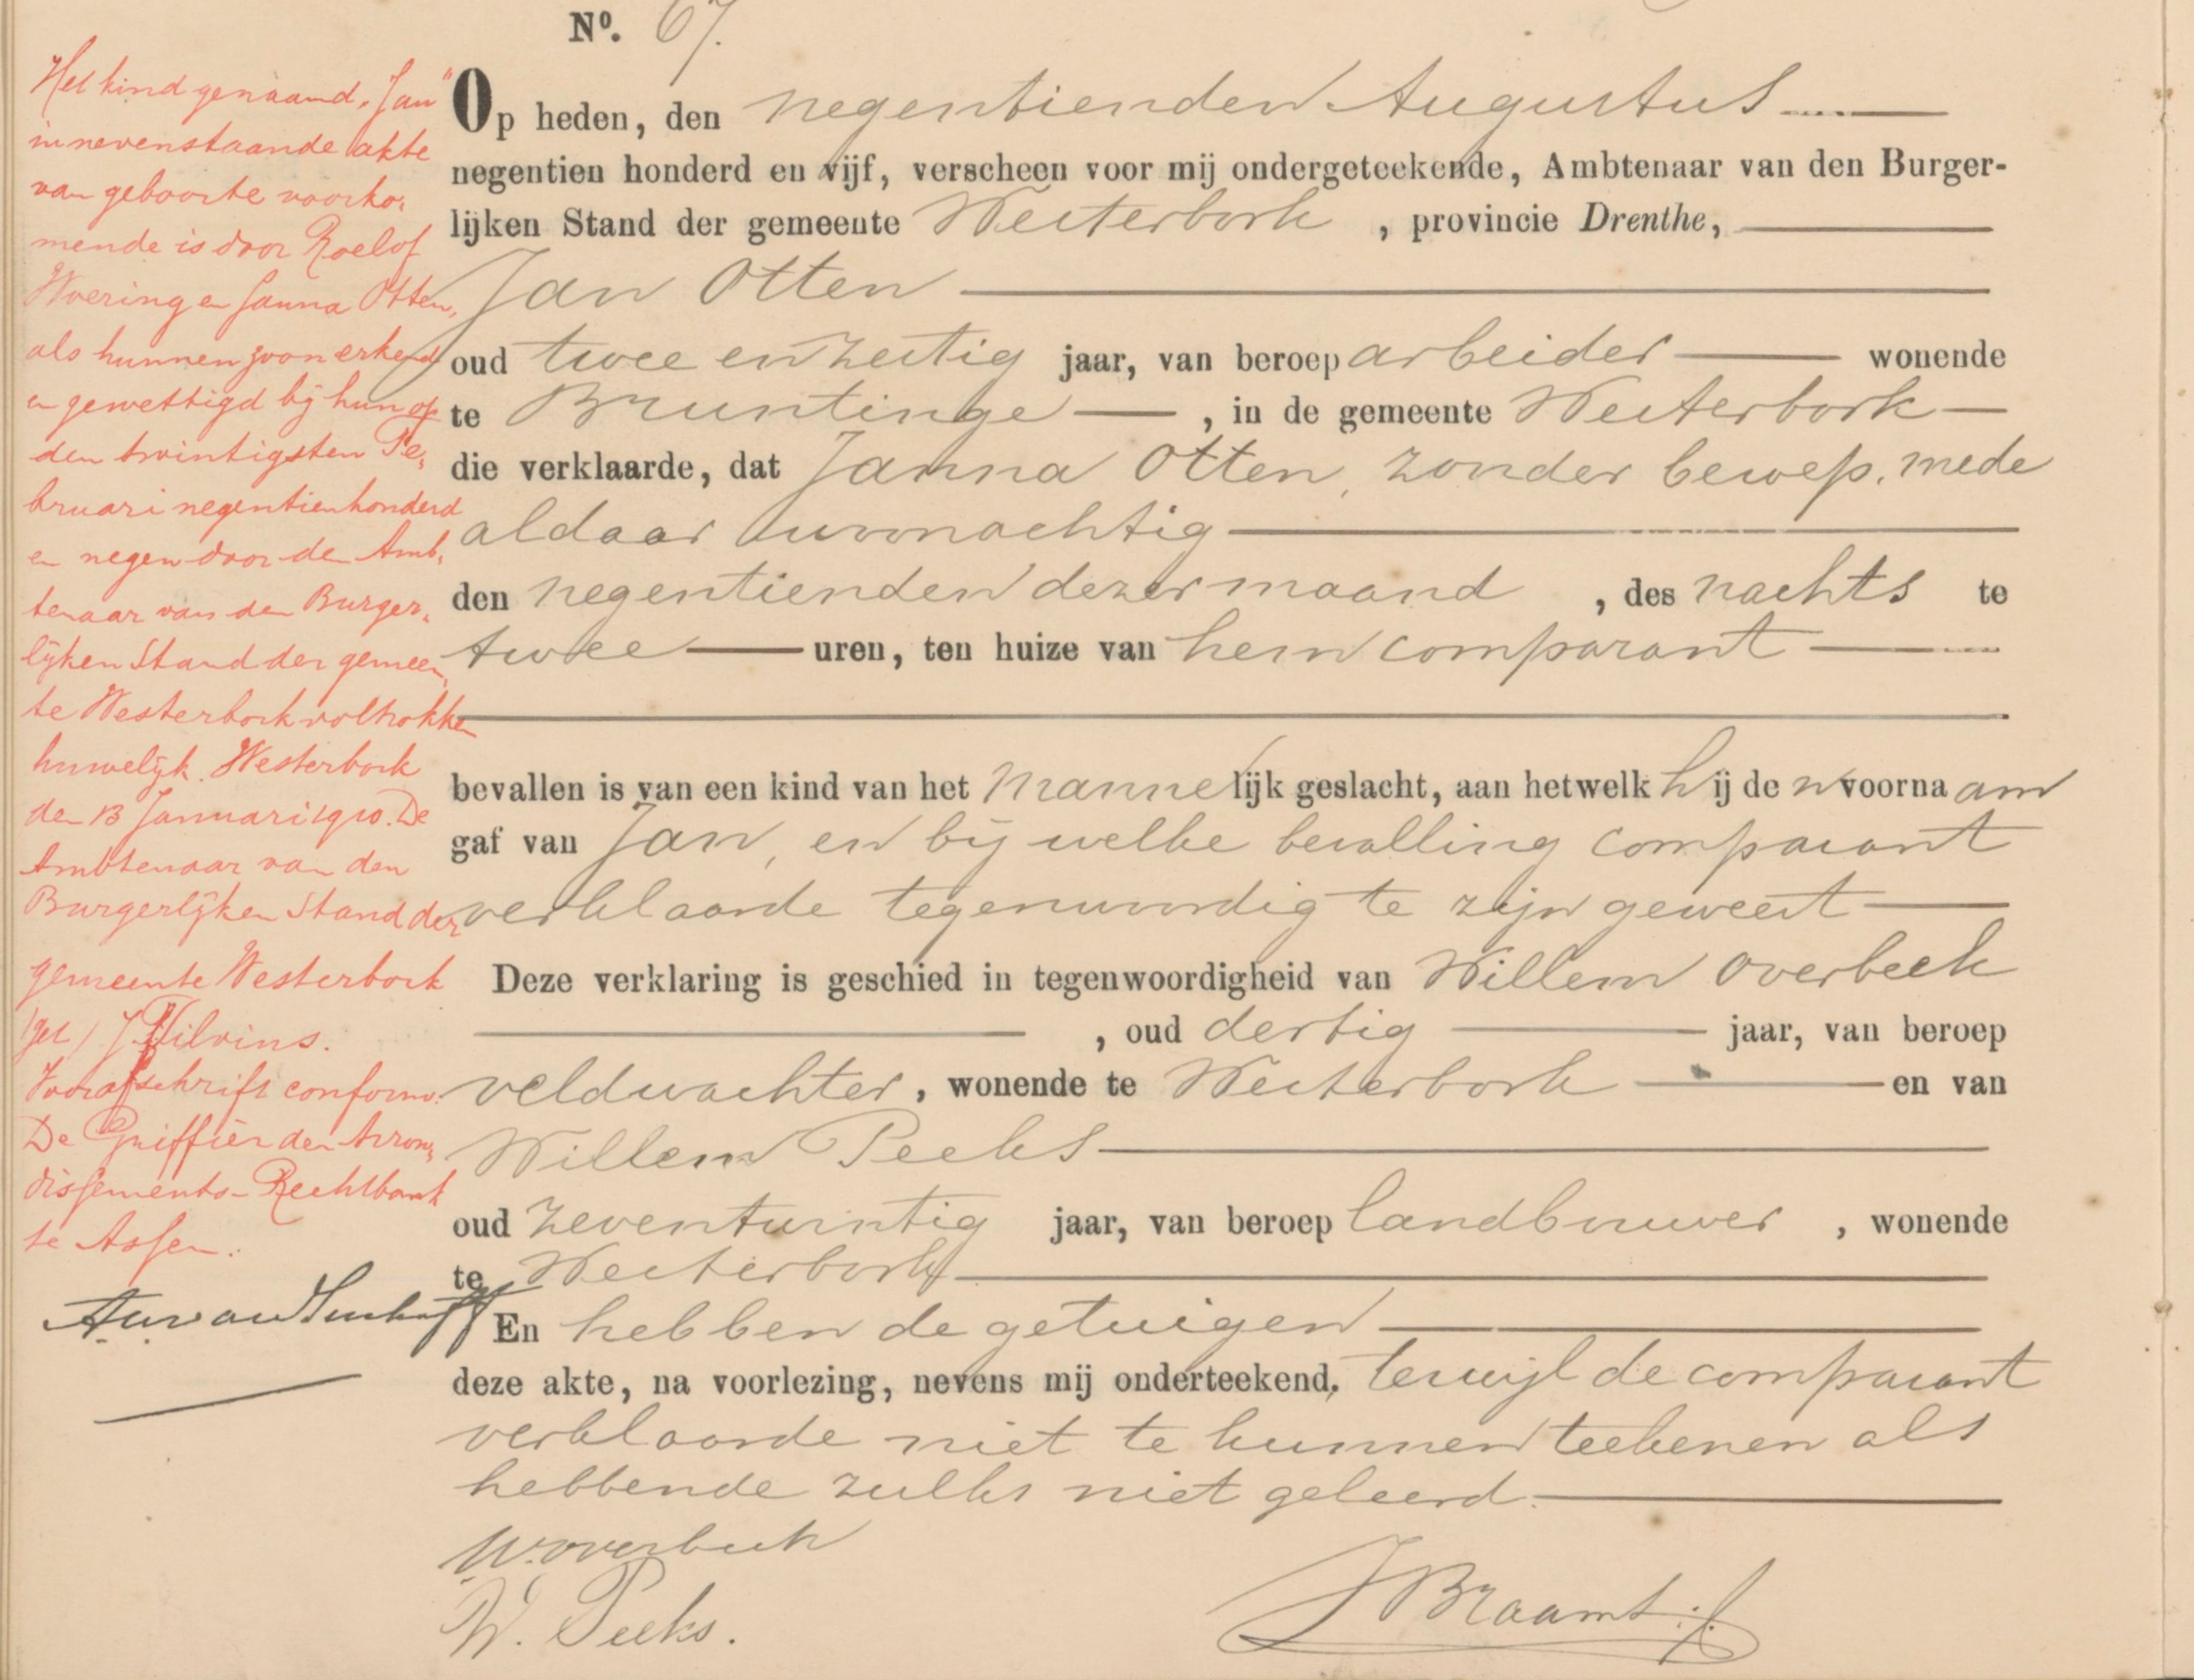 Nº. 67.
Het kind genaamd "Jan"
in nevenstaande akte
van geboorte voorko-
mende is door Roelof
Woering en Janna Otten,
als hunnen zoon erkend
en gewettigd bij hun op
den twintigsten Fe-
bruari negentienhonderd
en negen door den Amb-
tenaar van den Burger-
lijken Stand der gemeen-
te Westerbork voltrokken
huwelijk. Westerbork
den 13 Januari 1910. De
Ambtenaar van den
Burgerlijken Stand der
gemeente Westerbork
(get) J Wilvins.
Voor afschrift conform.
De Griffier der Arron-
dissements-Rechtbank
te Assen.
Op heden, den negentienden Augustus
negentien honderd en vijf, verscheen voor mij ondergeteekende, Ambtenaar van den Burger-
lijken Stand der gemeente Westerbork, provincie Drenthe,
Jan Otten
oud twee en zestig jaar, van beroep arbeider wonende
te Bruntinge, in de gemeente Westerbork
die verklaarde, dat Janna Otten, zonder beroep, mede
aldaar woonachtig
den negentienden dezer maand, des nachts te
twee uren, ten huize van hem comparant
bevallen is van een kind van het mannelijk geslacht, aan hetwelk hij de n voornaam
gaf van Jan, en bij welke bevalling comparant
verklaarde tegenwoordig te zijn geweest
Deze verklaring is geschied in tegenwoordigheid van Willem Overbeek
, oud dertig jaar, van beroep
veldwachter, wonende te Westerbork en van
Willem Peeks
oud zeventwintig jaar, van beroep landbouwer, wonende
te Westerbork
En hebben de getuigen
deze akte, na voorlezing, nevens mij onderteekend, terwijl de comparant
verklaarde niet te kunnen teekenen als
hebbende zulks niet geleerd.
W. Overbeek
W. Peeks.
J Braamt